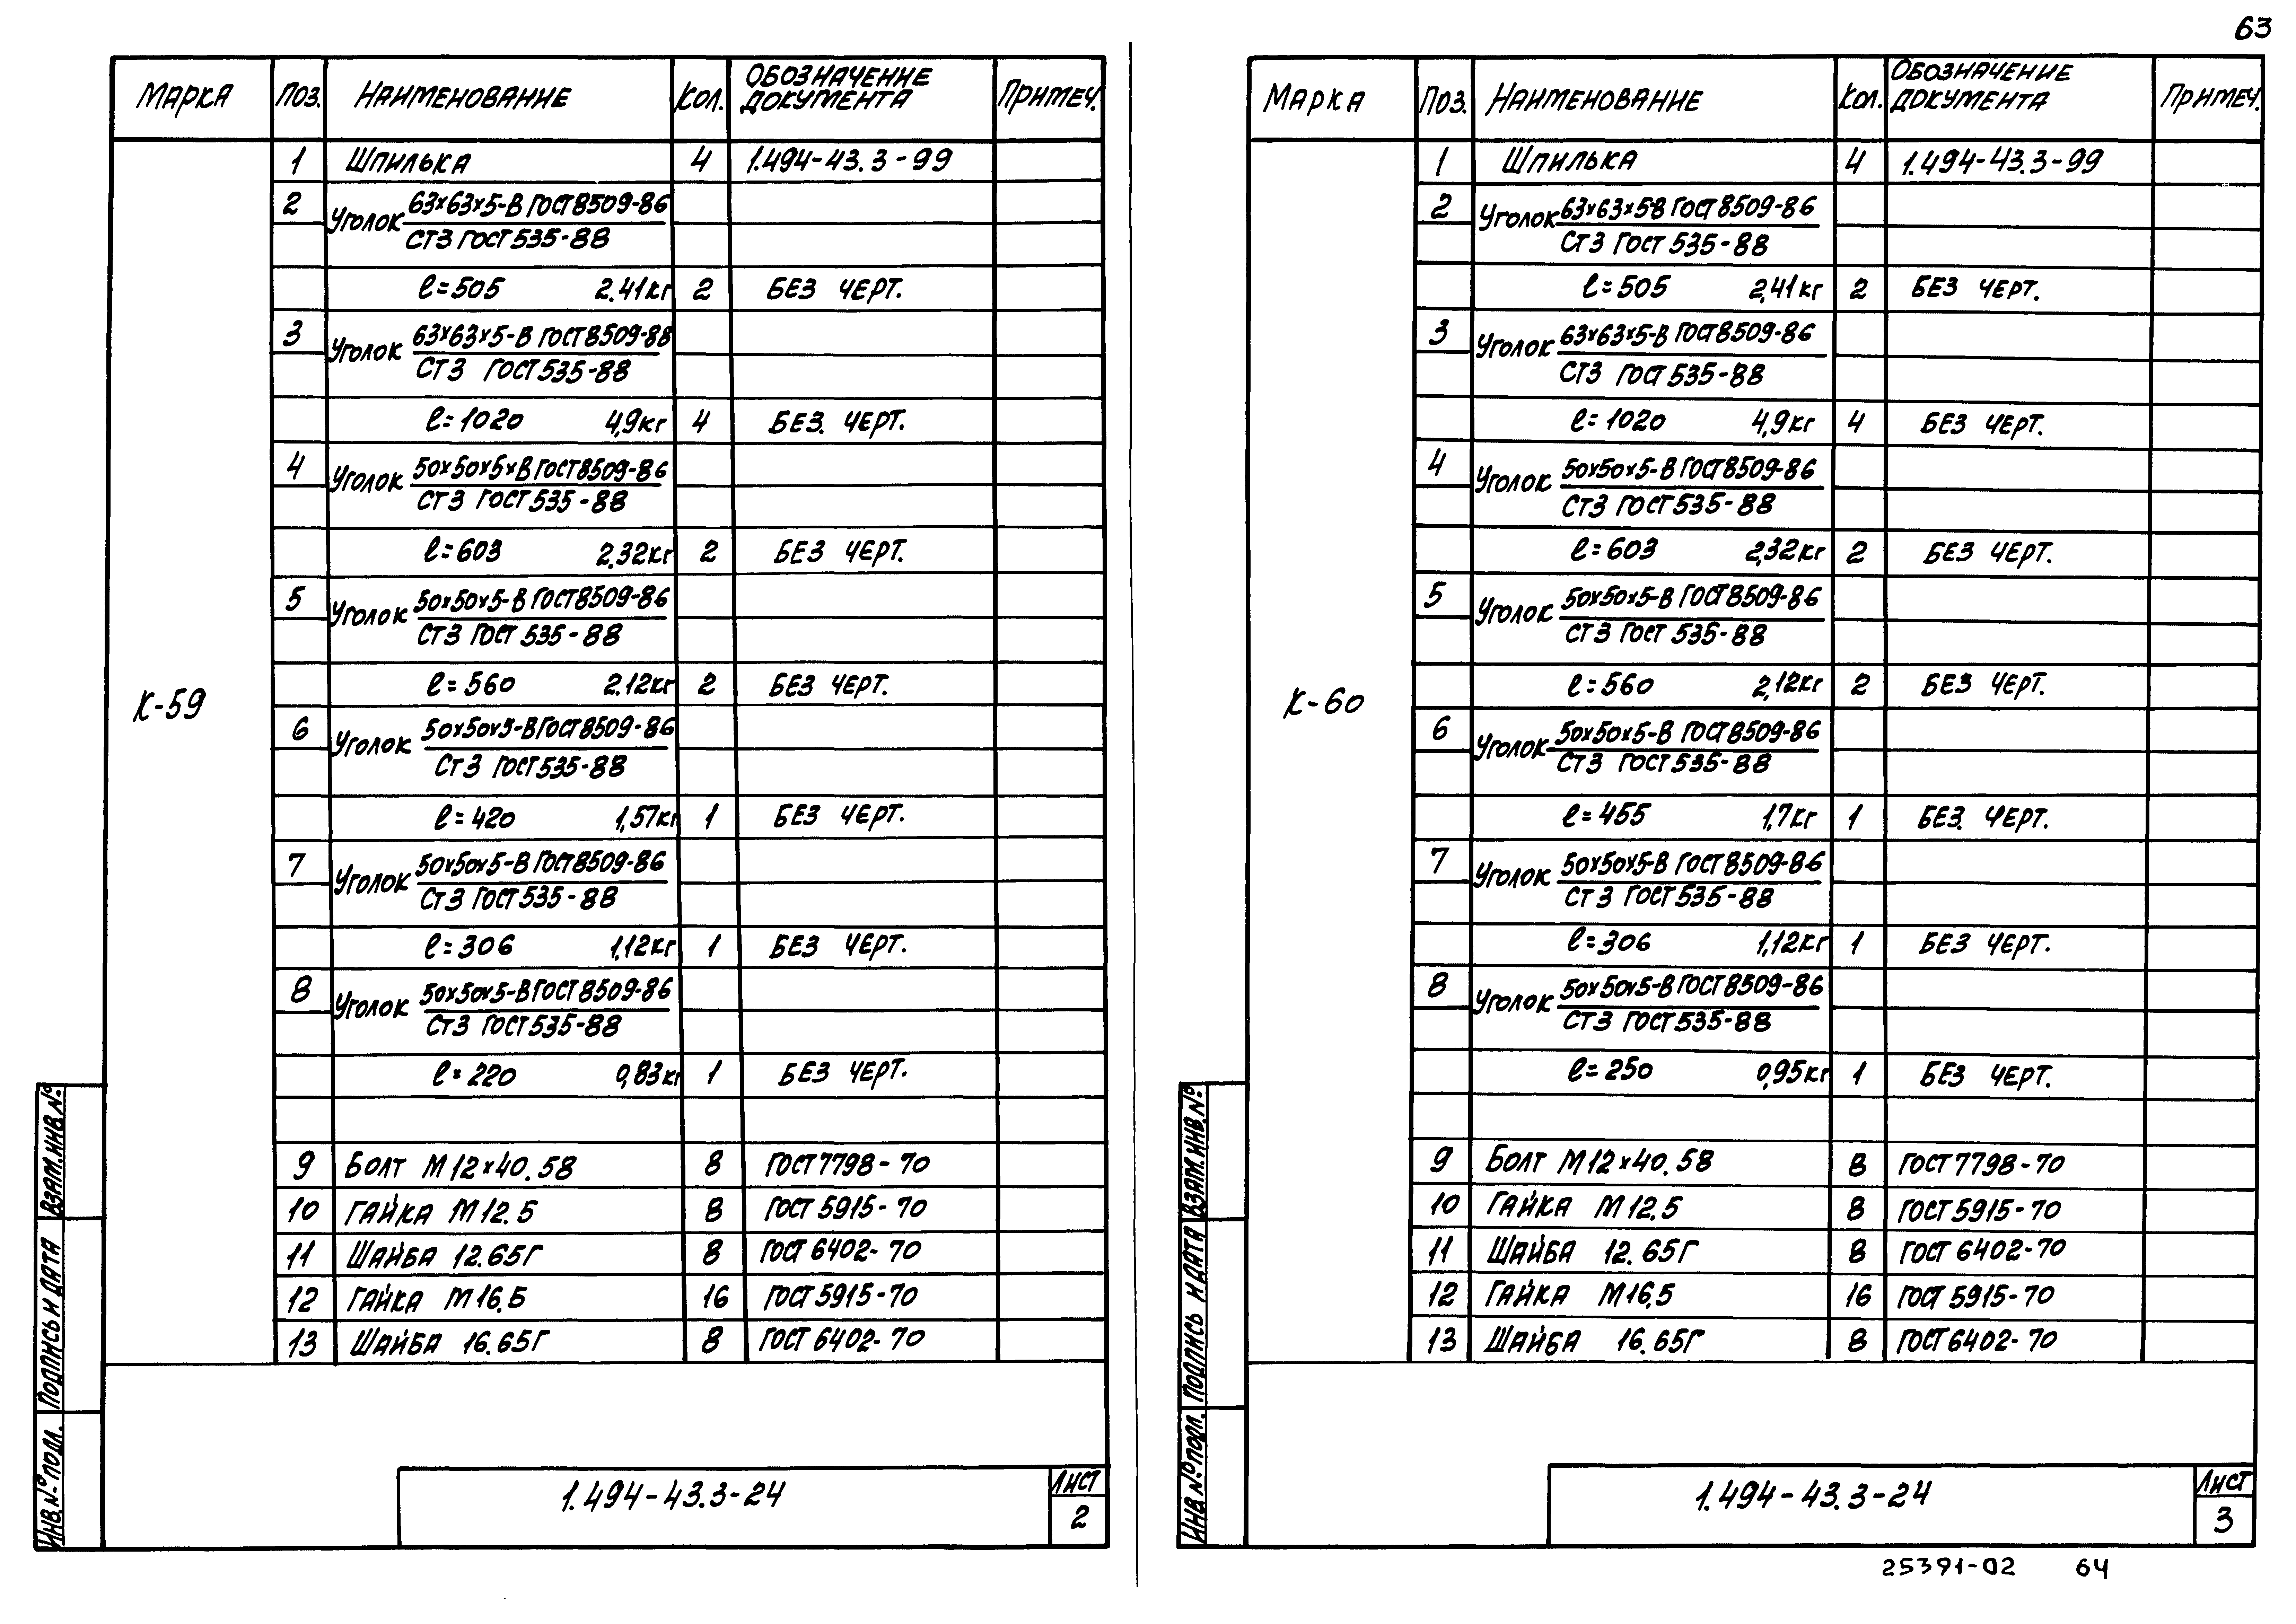 63
МАРКА ПОЗ. НАИМЕНОВАНИЕ КОЛ. ОБОЗНАЧЕНИЕ ДОКУМЕНТА ПРИМЕЧ.
К-59
1 ШПИЛЬКА 4 1.494-43.3-99
2 Уголок 63×63×5-В ГОСТ 8509-86
СТ3 ГОСТ 535-88
ℓ=505 2.41кг 2 БЕЗ ЧЕРТ.
3 Уголок 63×63×5-В ГОСТ 8509-88
СТ3 ГОСТ 535-88
ℓ=1020 4,9кг 4 БЕЗ. ЧЕРТ.
4 Уголок 50×50×5×В ГОСТ 8509-86
СТ3 ГОСТ 535-88
ℓ=603 2.32кг 2 БЕЗ ЧЕРТ.
5 Уголок 50×50×5-В ГОСТ 8509-86
СТ3 ГОСТ 535-88
ℓ=560 2.12кг 2 БЕЗ ЧЕРТ.
6 Уголок 50×50×5-В ГОСТ 8509-86
СТ3 ГОСТ 535-88
ℓ=420 1,57кг 1 БЕЗ ЧЕРТ.
7 Уголок 50×50×5-В ГОСТ 8509-86
СТ3 ГОСТ 535-88
ℓ=306 1,12кг 1 БЕЗ ЧЕРТ.
8 Уголок 50×50×5-В ГОСТ 8509-86
СТ3 ГОСТ 535-88
ℓ=220 0,83кг 1 БЕЗ ЧЕРТ.
9 БОЛТ М12×40.58 8 ГОСТ 7798-70
10 ГАЙКА М12.5 8 ГОСТ 5915-70
11 ШАЙБА 12.65Г 8 ГОСТ 6402-70
12 ГАЙКА М16.5 16 ГОСТ 5915-70
13 ШАЙБА 16.65Г 8 ГОСТ 6402-70
ИНВ.№ ПОДЛ. ПОДПИСЬ И ДАТА ВЗАМ.ИНВ.№
1.494-43.3-24
ЛИСТ
2
МАРКА ПОЗ. НАИМЕНОВАНИЕ КОЛ. ОБОЗНАЧЕНИЕ ДОКУМЕНТА ПРИМЕЧ.
К-60
1 ШПИЛЬКА 4 1.494-43.3-99
2 Уголок 63×63×5-В ГОСТ 8509-86
СТ3 ГОСТ 535-88
ℓ=505 2,41кг 2 БЕЗ ЧЕРТ.
3 Уголок 63×63×5-В ГОСТ 8509-86
СТ3 ГОСТ 535-88
ℓ=1020 4,9кг 4 БЕЗ ЧЕРТ.
4 Уголок 50×50×5-В ГОСТ 8509-86
СТ3 ГОСТ 535-88
ℓ=603 2,32кг 2 БЕЗ ЧЕРТ.
5 Уголок 50×50×5-В ГОСТ 8509-86
СТ3 ГОСТ 535-88
ℓ=560 2,12кг 2 БЕЗ ЧЕРТ.
6 Уголок 50×50×5-В ГОСТ 8509-86
СТ3 ГОСТ 535-88
ℓ=455 1,7кг 1 БЕЗ. ЧЕРТ.
7 Уголок 50×50×5-В ГОСТ 8509-86
СТ3 ГОСТ 535-88
ℓ=306 1,12кг 1 БЕЗ ЧЕРТ.
8 Уголок 50×50×5-В ГОСТ 8509-86
СТ3 ГОСТ 535-88
ℓ=250 0,95кг 1 БЕЗ ЧЕРТ.
9 БОЛТ М12×40.58 8 ГОСТ 7798-70
10 ГАЙКА М12.5 8 ГОСТ 5915-70
11 ШАЙБА 12.65Г 8 ГОСТ 6402-70
12 ГАЙКА М16,5 16 ГОСТ 5915-70
13 ШАЙБА 16.65Г 8 ГОСТ 6402-70
ИНВ.№ ПОДЛ. ПОДПИСЬ И ДАТА ВЗАМ.ИНВ.№
1.494-43.3-24
ЛИСТ
3
25391-02 64